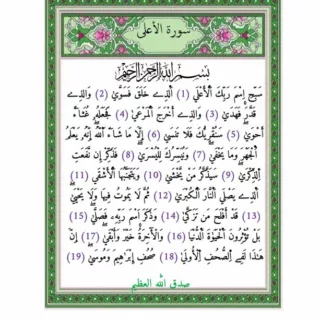 سورة الأعلى
بسم الله الرحمن الرحيم
سَبِّحِ اِسْمَ رَبِّكَ اَلْأَعْلَي (1) اَلذِے خَلَقَ فَسَوّٰيٰ (2) وَالذِے
قَدَّرَ فَهَدٰيٰ (3) وَالذِے أَخْرَجَ اَلْمَرْعٰيٰ (4) فَجَعَلَهُۥ غُثَآءً
اَحْوٰيٰ (5) سَنُقْرِئُكَ فَلَا تَنسٰيٰ (6) إِلَّا مَا شَآءَ اَللَّهُ إِنَّهُۥ يَعْلَمُ
اُلْجَهْرَ وَمَا يَخْفٰيٰ (7) وَنُيَسِّرُكَ لِلْيُسْرٰيٰ (8) فَذَكِّرِ اِن نَّفَعَتِ
اِلذِّكْرٰيٰ (9) سَيَذَّكَّرُ مَنْ يَّخْشٰيٰ (10) وَيَتَجَنَّبُهَا اَلْأَشْقَي (11)
اَلذِے يَصْلَي اَلنَّارَ اَلْكُبْرٰيٰ (12) ثُمَّ لَا يَمُوتُ فِيهَا وَلَا يَحْيٰيٰ
(13) قَدَ اَفْلَحَ مَن تَزَكّٰيٰ (14) وَذَكَرَ اَسْمَ رَبِّهِۦ فَصَلّٰيٰ (15)
بَلْ تُؤْثِرُونَ اَلْحَيَوٰةَ اَلدُّنْيٰا (16) وَالْأَخِرَةُ خَيْرٌ وَأَبْقٰيٰ (17) إِنَّ
هَٰذَا لَفِے اِلصُّحُفِ اِلْأُولٰيٰ (18) صُحُفِ إِبْرَٰهِيمَ وَمُوسٰيٰ (19)
صدق الله العظيم